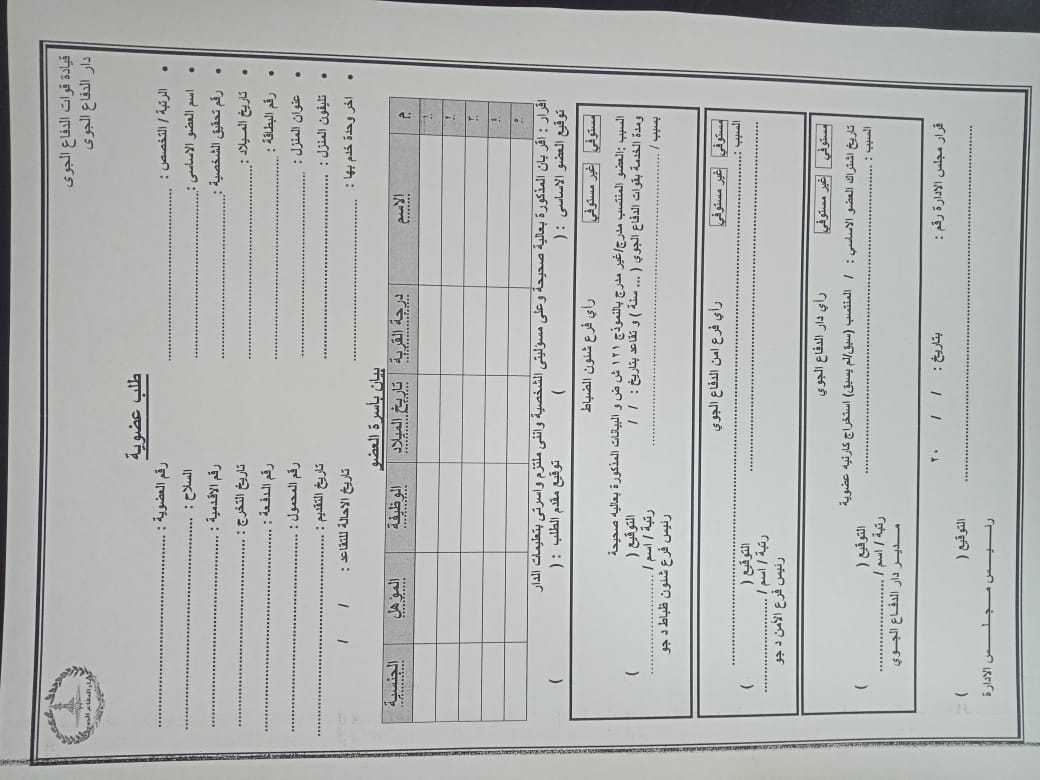 قيادة قوات الدفاع الجوى
دار الدفاع الجوى
طلب عضوية
الرتبة / التخصص : .......... رقم العضوية : ..........
اسم العضو الاساسى : .......... السلاح : ..........
رقم تحقيق الشخصية : .......... رقم الاقدمية : ..........
تاريخ الميلاد : .......... تاريخ التخرج : ..........
رقم البطاقة : .......... رقم الدفعة : ..........
عنوان المنزل : .......... رقم المحمول : ..........
تليفون المنزل : .......... تاريخ التقديم : ..........
اخر وحدة خدم بها : .......... تاريخ الاحالة للتقاعد : / /
بيان بأسرة العضو
م الاسم درجة القرابة تاريخ الميلاد الوظيفة المؤهل الجنسية
١
٢
٣
٤
٥
اقرار : اقر بان المذكورة بعالية صحيحة وعلى مسؤليتى الشخصية واننى ملتزم واسرتى بتعليمات الدار
توقيع العضو الاساسى : ( ) توقيع مقدم الطلب : ( )
رأي فرع شئون الضباط
مستوفي غير مستوفي
السبب :العضو المنتسب مدرج/غير مدرج بالنموذج ١٢١ ش ض و البيانات المذكورة بعاليه صحيحة
ومدة الخدمة بقوات الدفاع الجوي ( ... سنة ) و تقاعد بتاريخ : / /
بسبب / ..........
التوقيع ( )
رتبة / اسم / ..........
رئيس فرع شئون ظباط د جو
رأي فرع امن الدفاع الجوي
مستوفي غير مستوفي
السبب : ..........
..........
التوقيع ( )
رتبة / اسم / ..........
رئيس فرع الأمن د جو
رأي دار الدفاع الجوي
مستوفي غير مستوفي
تاريخ اشتراك العضو الاساسي : / المنتسب (سبق/لم يسبق) استخراج كارنيه عضوية
السبب : ..........
التوقيع ( )
رتبة / اسم / ..........
مدير دار الدفاع الجوي
قرار مجلس الادارة رقم : بتاريخ : / / ٢٠
..........
التوقيع ( )
رئيس مجلس الادارة